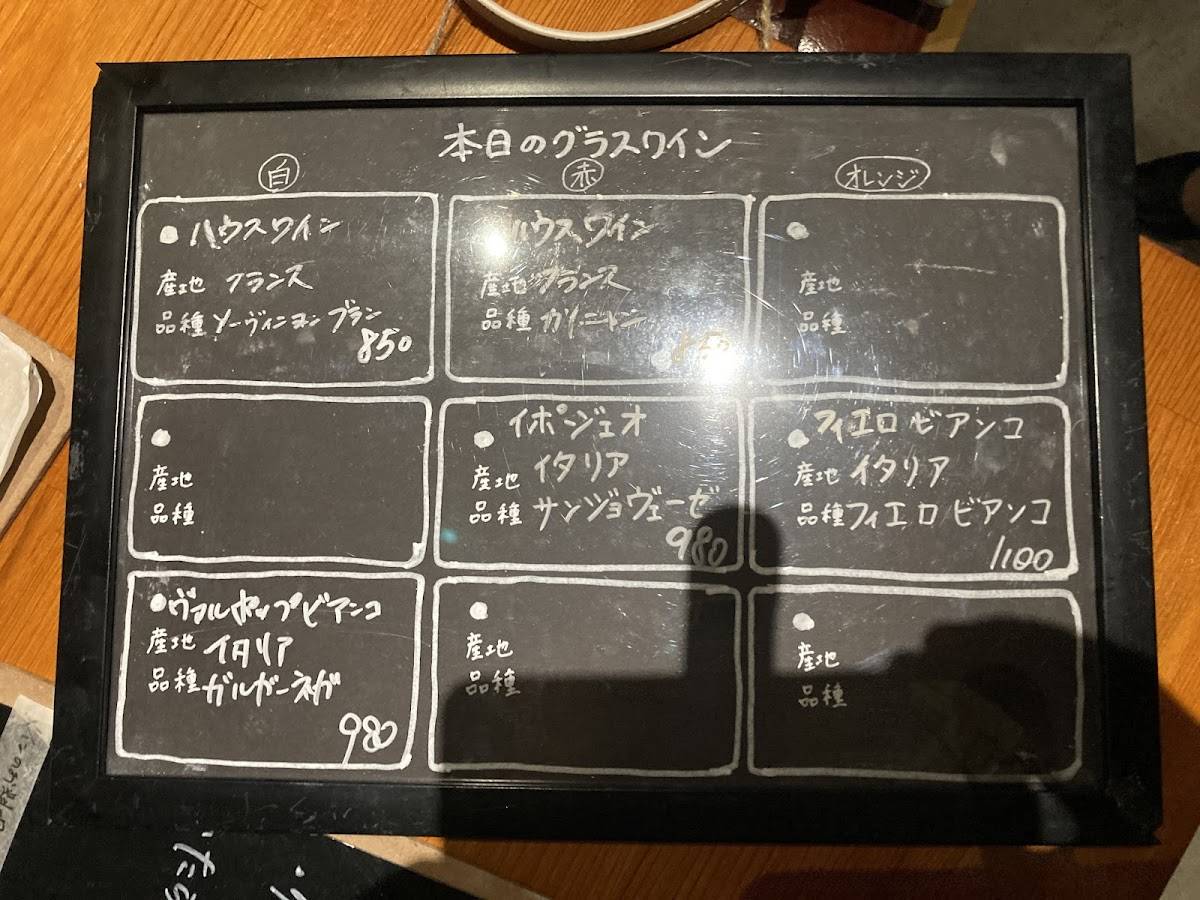 本日のグラスワイン
白
赤
オレンジ
ハウスワイン
産地 フランス
品種 ソーヴィニヨンブラン
850
ハウスワイン
産地 フランス
品種
850
産地
品種
産地
品種
イポジェオ
産地 イタリア
品種 サンジョヴェーゼ
980
フィエロビアンコ
産地 イタリア
品種 フィエロビアンコ
1100
ヴァルポップビアンコ
産地 イタリア
品種 ガルガーネガ
980
産地
品種
産地
品種